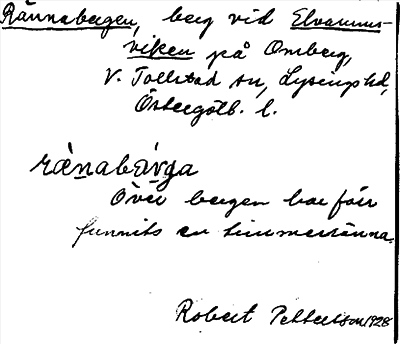 Rännabergen, berg vid Elvarums-
viken på Omberg,
V. Tollstad sn, Lysings hd,
Östergötl. l.
rænabärga
Över bergen har förr
funnits en timmerränna.
Robert Pettersson 1928